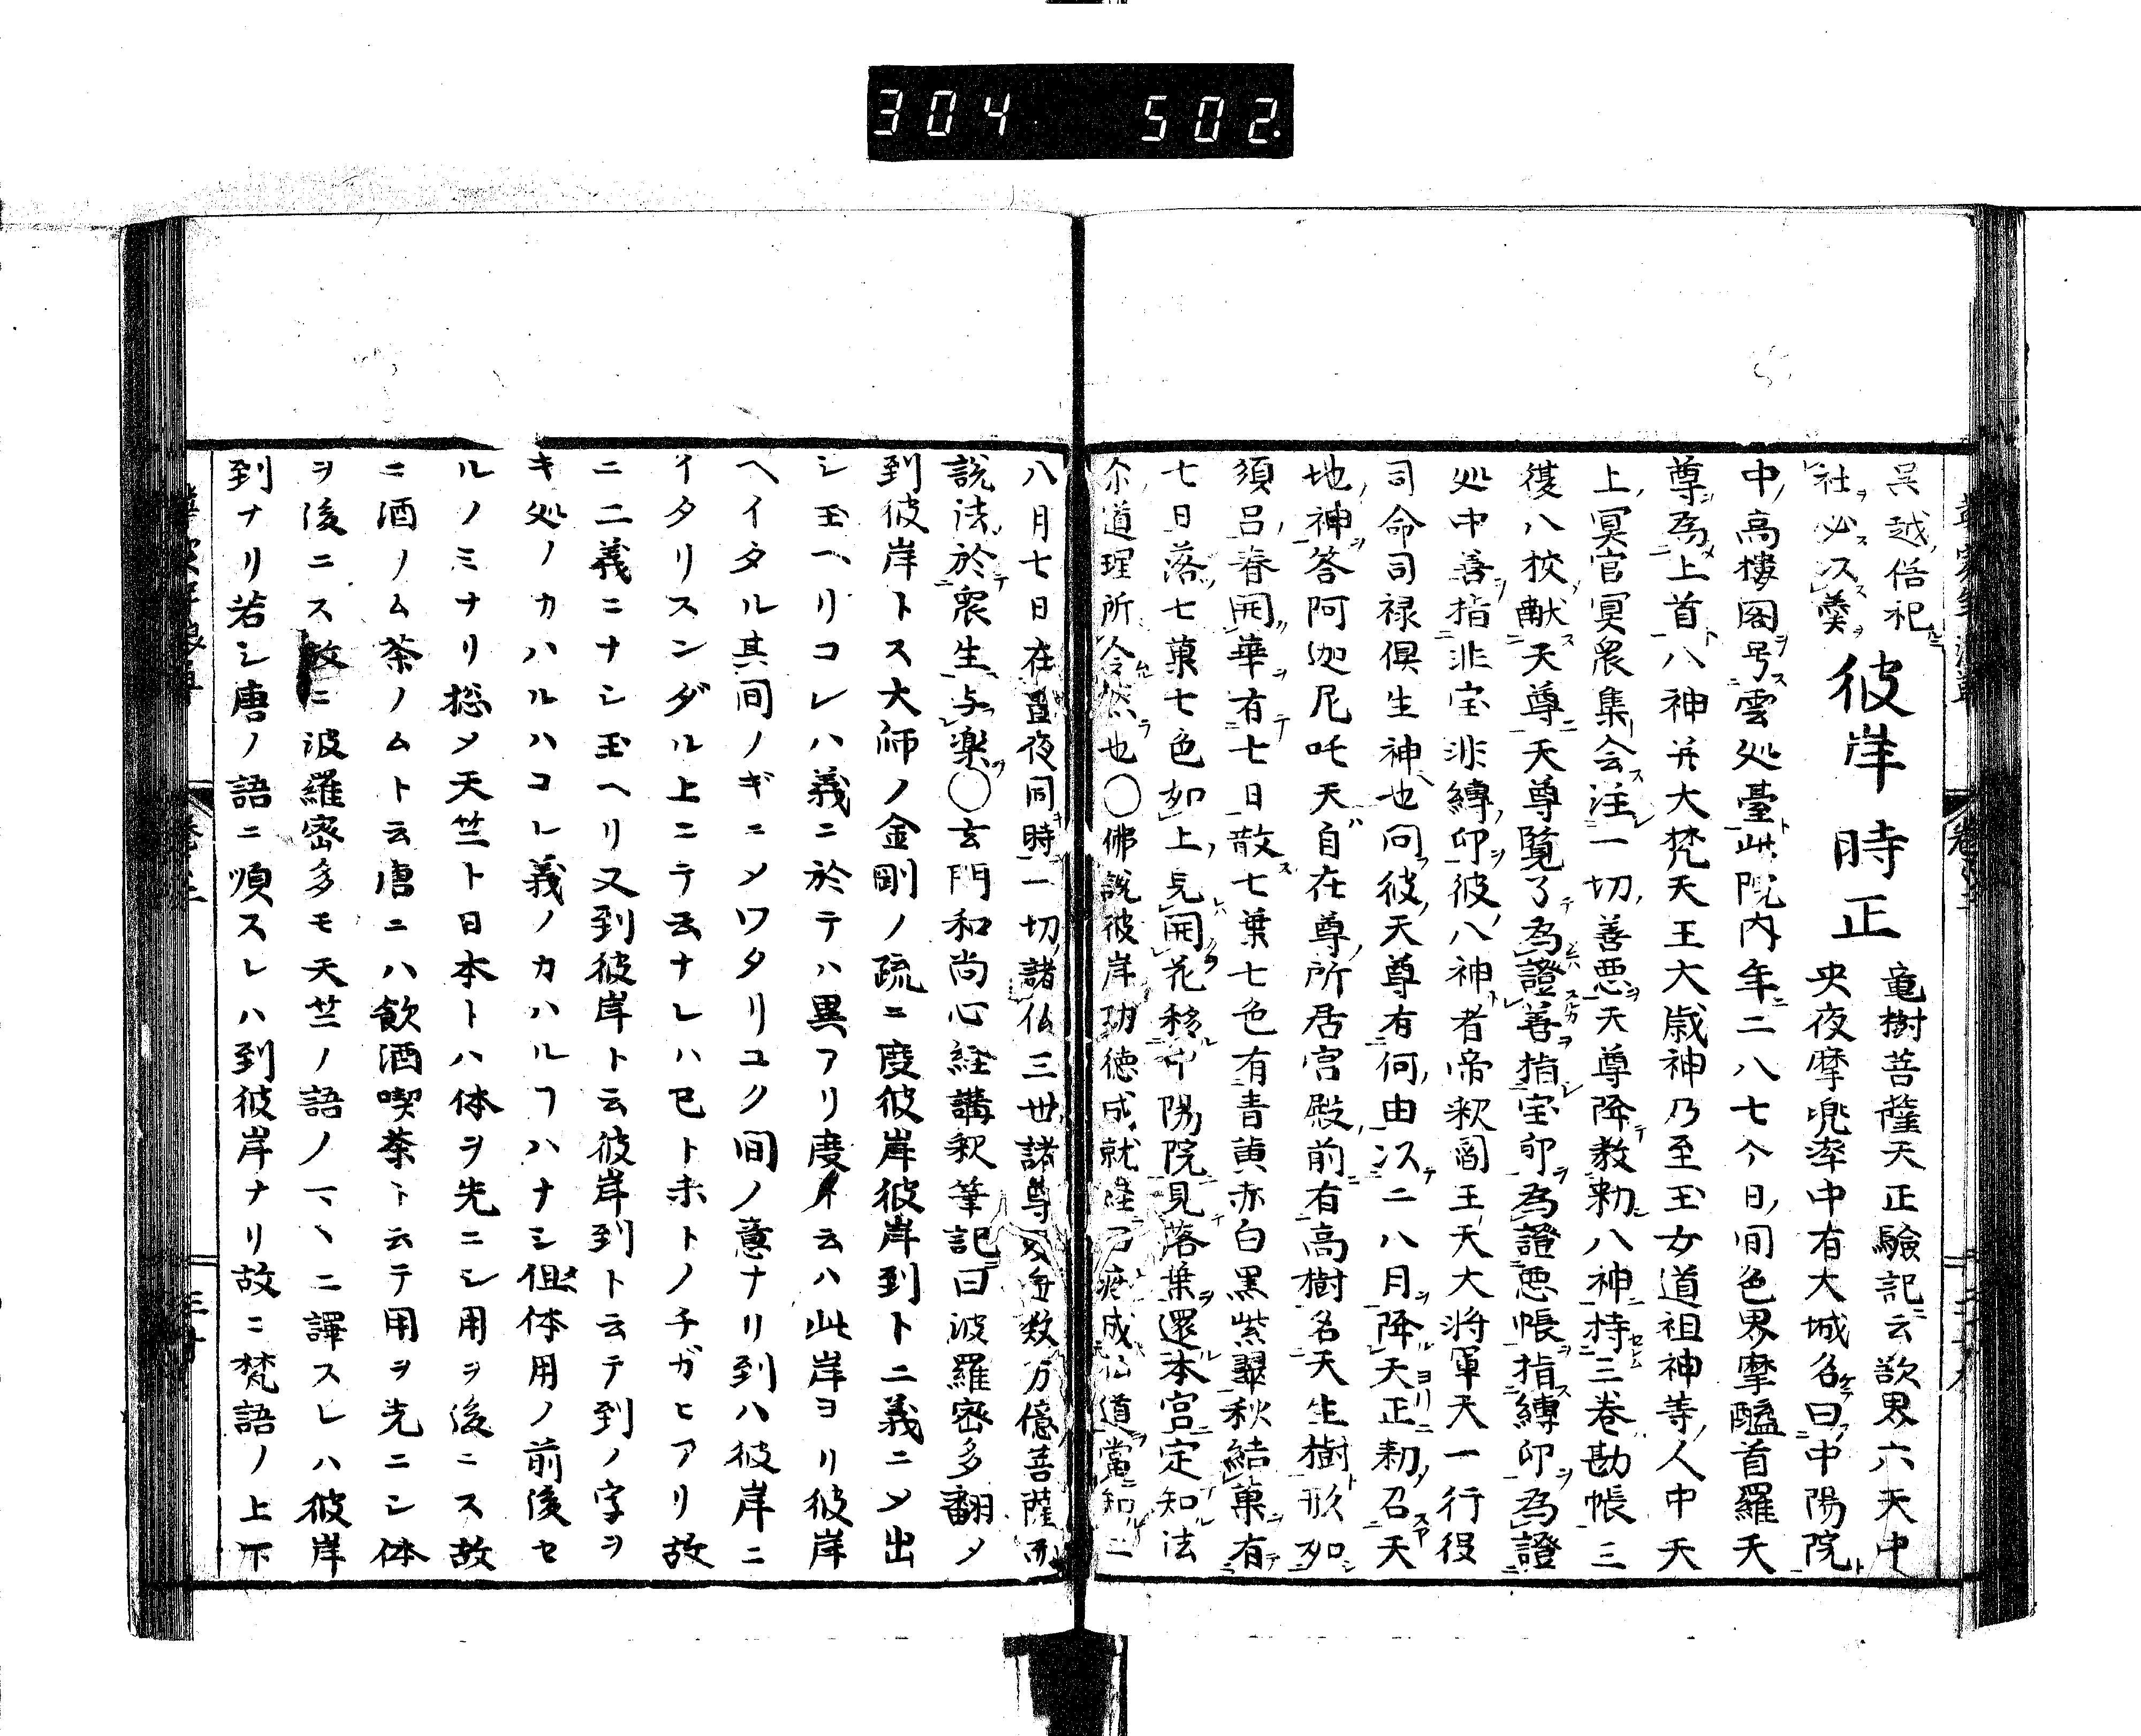 304 502.
呉越俗祀
社必ス羹
彼岸 時正
竜樹菩薩天正驗記云欲界六天中
央夜摩兜率中有大城名曰中陽院
中高樓閣号雲処臺此院内年二八七今日间色界摩醯首羅天
尊為上首八神并大梵天王大歳神乃至玉女道祖神等人中天
上冥官冥衆集会注一切善悪天尊降教勅八神持三巻勘帳三
復八校献天尊天尊覧了為證善指宝印為證悪帳指縛印為證
処中善指非宝非縛印彼八神者帝釈閻王天大将軍天一行役
司命司禄倶生神也问彼天尊有何由以二八月降天正勅召天
地神答阿迦尼吒天自在尊所居宮殿前有高樹名天生樹形如
須呂春開華有七日散七葉七色有青黄赤白黒紫翠秋結菓有
七日落七菓七色如上見開花移中陽院見落葉還本宮定知法
尒道理所令然也〇佛説彼岸功徳成就経曰 成仏道當知二
八月七日在昼夜同時一切諸仏三世諸尊 無数万億菩薩
説法於衆生与楽〇玄門和尚心経講釈筆記曰波羅密多翻メ
到彼岸トス大師ノ金剛ノ疏ニ度彼岸彼岸到ト二義ニメ出
シ玉ヘリコレハ義ニ於テハ異アリ度トイ云ハ此岸ヨリ彼岸
ヘイタル其间ノギニメワタリユク间ノ意ナリ到ハ彼岸ニ
イタリスンダル上ニテ云ナレハ已ト未トノチガヒアリ故
ニ二義ニナシ玉ヘリ又到彼岸ト云彼岸到ト云テ到ノ字ヲ
キ処ノカハルハコレ義ノカハルフハナシ但体用ノ前後セ
ルノミナリ総メ天竺ト日本トハ体ヲ先ニシ用ヲ後ニス故
ニ酒ノム茶ノムト云唐ニハ飲酒喫茶ト云テ用ヲ先ニシ体
ヲ後ニス故ニ波羅密多モ天竺ノ語ノマヽニ譯スレハ彼岸
到ナリ若シ唐ノ語ニ順スレハ到彼岸ナリ故ニ梵語ノ上下